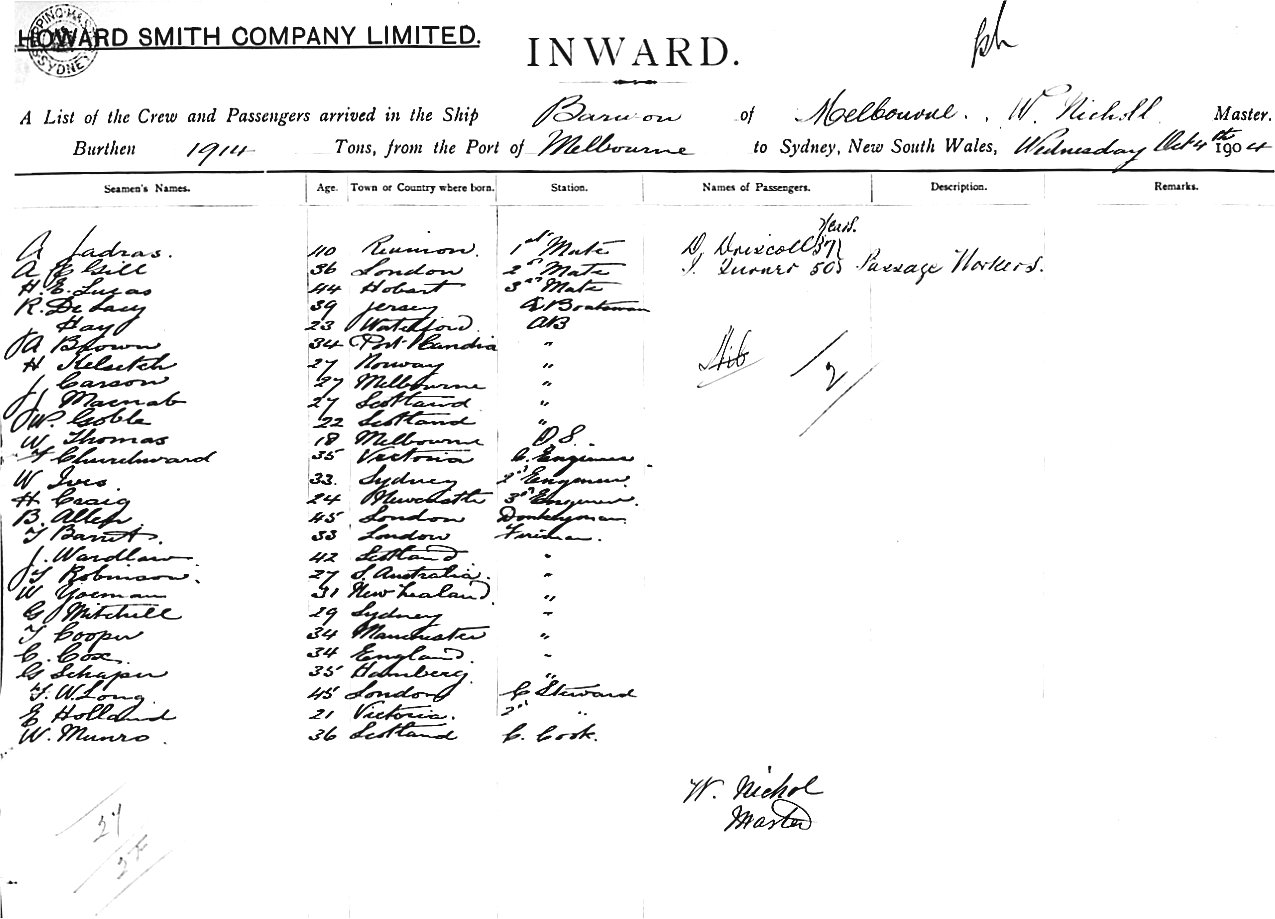 HOWARD SMITH COMPANY LIMITED.
INWARD.
A List of the Crew and Passengers arrived in the Ship Barwon of Melbourne. W. Nicholl Master.
Burthen 1914 Tons, from the Port of Melbourne to Sydney, New South Wales, Wednesday Oct 4th 1904
Seamen's Names. Age. Town or Country where born. Station. Names of Passengers. Description. Remarks.
Years.
A Jadras. 40 Reunion. 1st Mate D. Driscoll 37
A E Gill 36 London 2nd Mate T. Turner 50 Passage Workers.
H. E. Lucas 44 Hobart 3rd Mate
R. De Lacy 39 Jersey Boatsman
J Hay 23 Waterford. AB
A Brown 34 Port Candia "
H Kelsetch 27 Norway "
J Carson 27 Melbourne "
J Macnab 27 Scotland "
W. Goble 22 Scotland "
W Thomas 18 Melbourne O S.
F Churchward 35 Victoria C. Engineer
W Ives 33. Sydney 2nd Engineer.
H Craig 24 Newcastle 3rd Engineer
B. Allen 45 London Donkeyman
T Barrett. 33 London Fireman.
J. Wardlaw 42 Scotland "
T Robinson. 27 S. Australia. "
W Yoeman 31 New Zealand "
G Mitchell 29 Sydney "
T Cooper 34 Manchester "
C. Cox. 34 England. "
G Schaper 35 Hamberg. "
F. W. Long 45 London C Steward
E Holland 21 Victoria. 2nd "
W. Munro. 36 Scotland C. Cook.
W. Nichol
Master
27